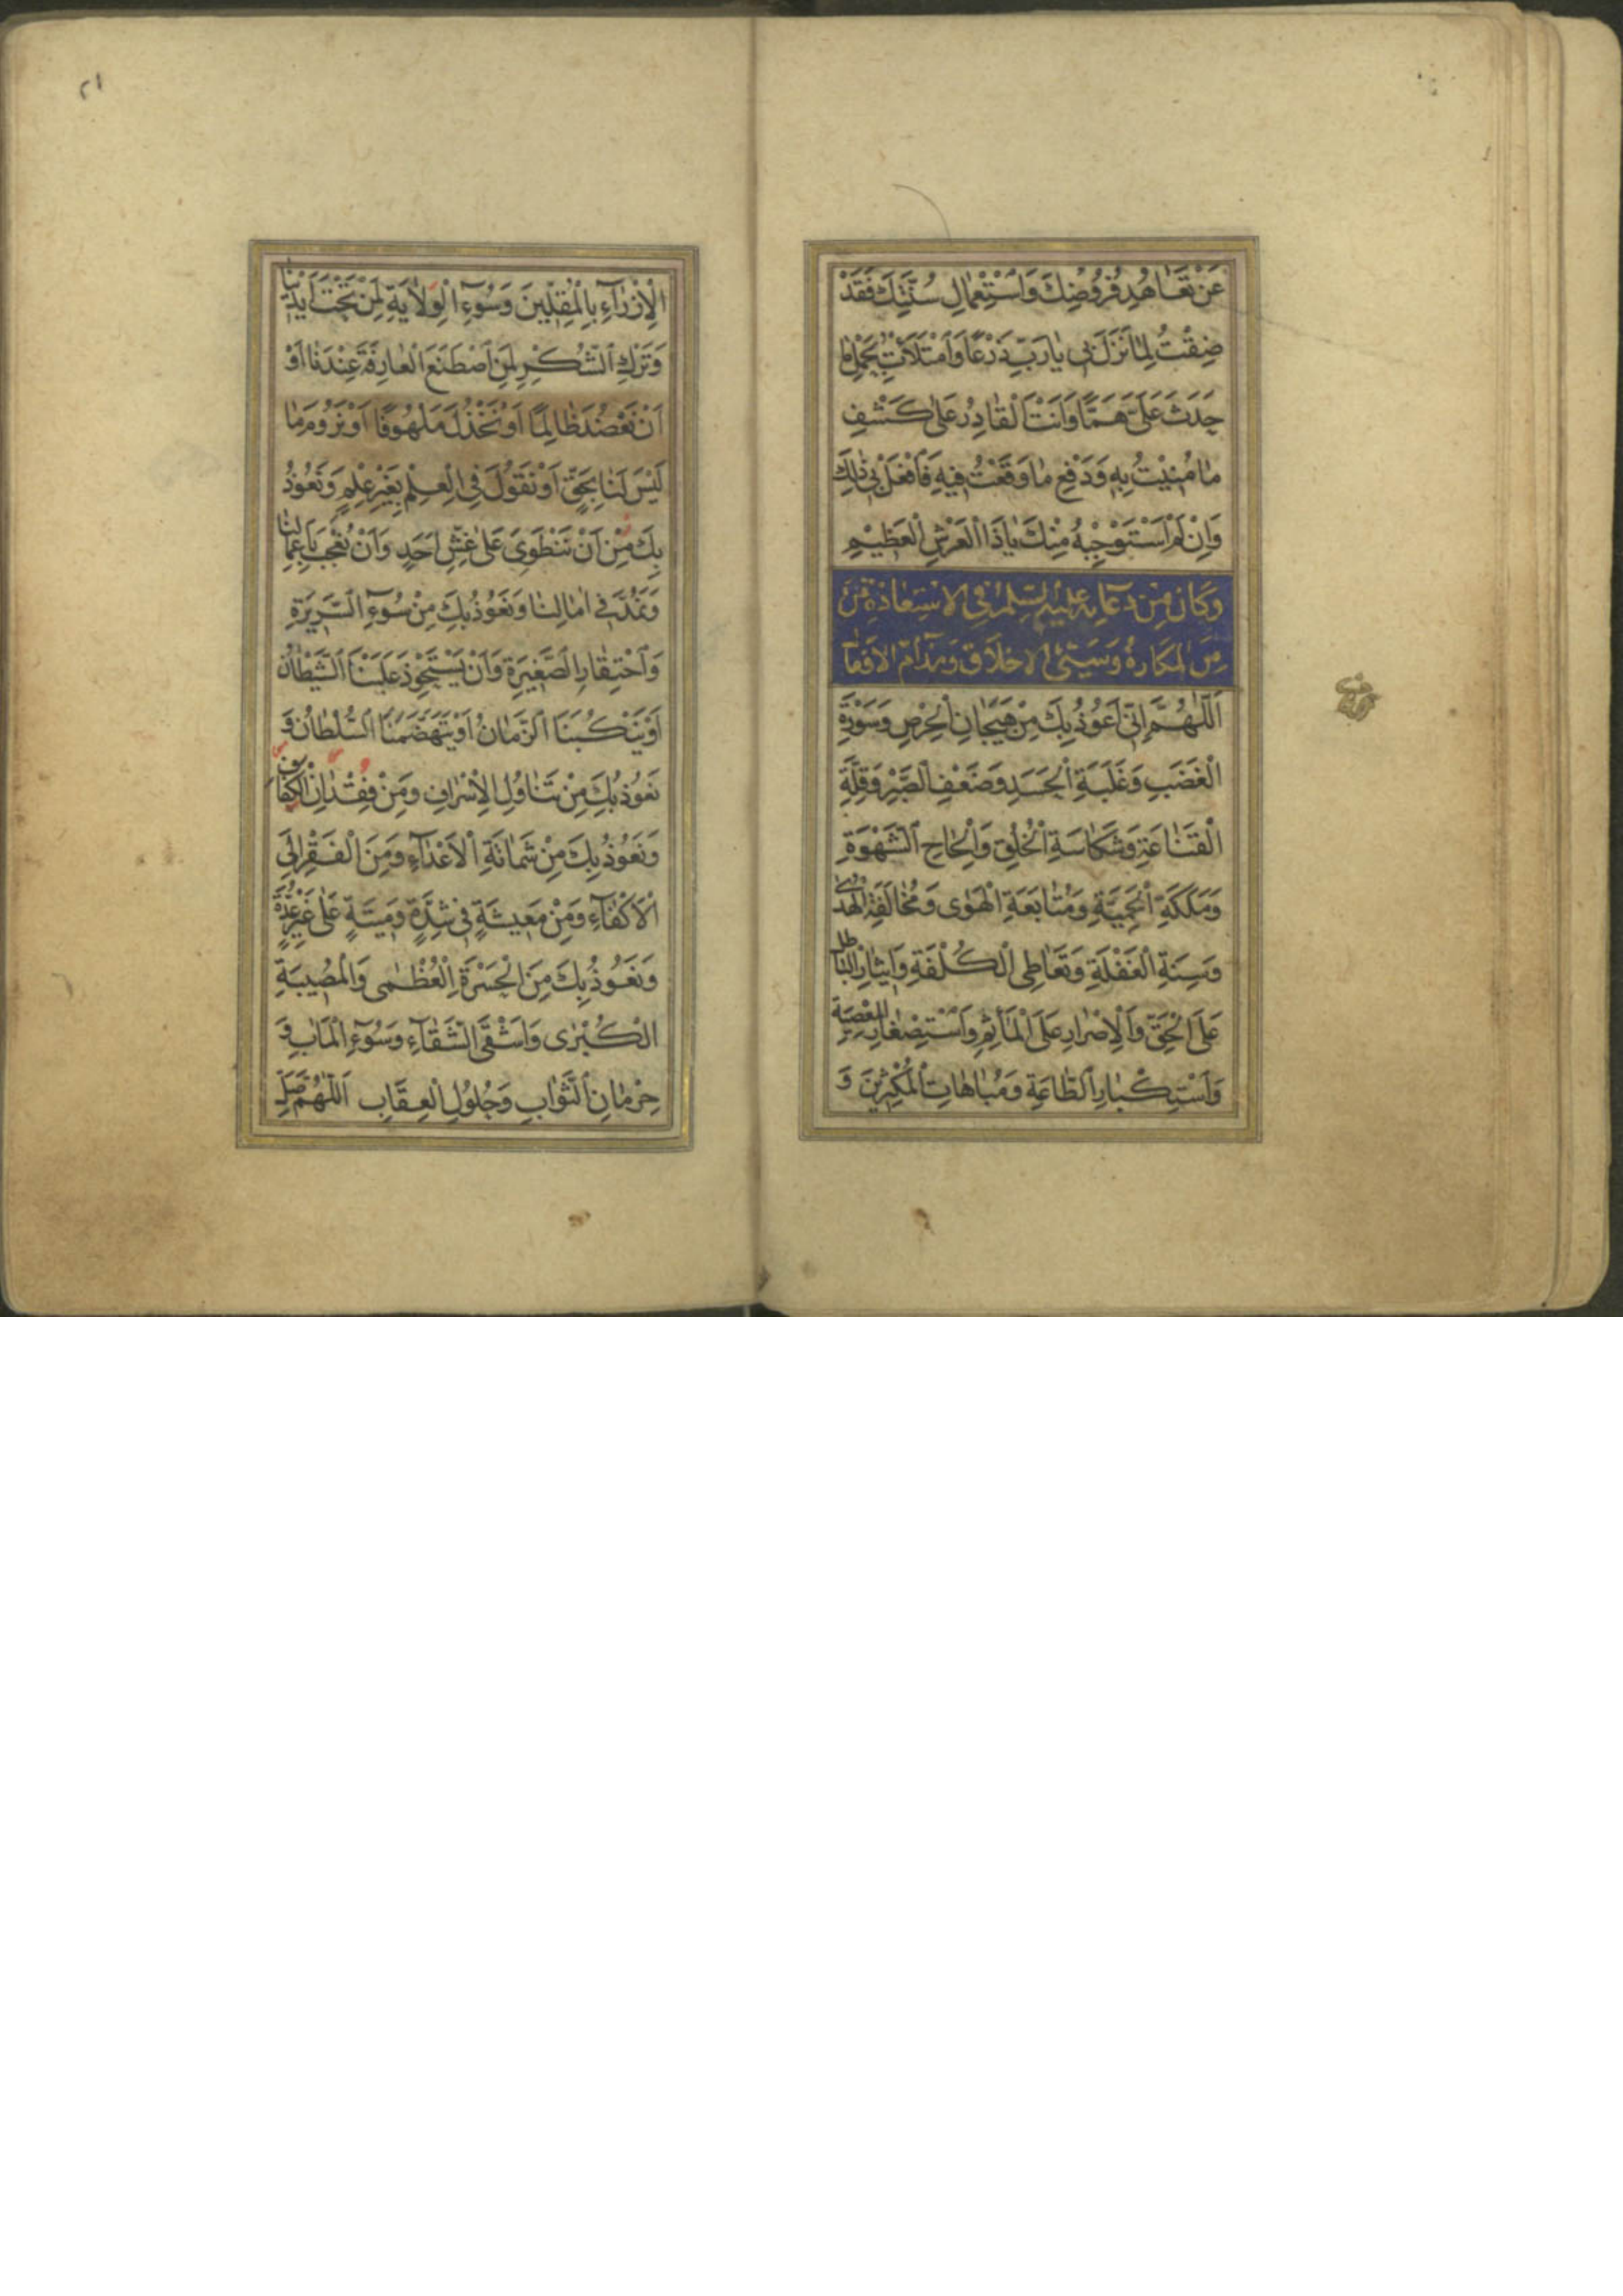 عَنْ تَعَاهُدِ فُرُوضِكَ وَاسْتِعْمَالِ سُنَّتِكَ فَقَدْ
ضِقْتُ لِمَا نَزَلَ بِي يَا رَبِّ ذَرْعًا وَامْتَلَأْتُ بِحَمْلِ مَا
حَدَثَ عَلَيَّ هَمًّا وَأَنْتَ الْقَادِرُ عَلَى كَشْفِ
مَا مُنِيْتُ بِهِ وَدَفْعِ مَا وَقَعْتُ فِيهِ فَافْعَلْ بِي ذٰلِكَ
وَإِنْ لَمْ أَسْتَوْجِبْهُ مِنْكَ يَا ذَا الْعَرْشِ الْعَظِيْمِ
وَكَانَ مِنْ دُعَائِهِ عَلَيْهِ السَّلَمُ فِي الاسْتِعَاذَةِ مِنَ
مِنَ الْمَكَارِهِ وَسَيِّئِ الاخلَاقِ وَمَذَامِّ الافعَال
اَللّٰهُمَّ إِنِّي أَعُوذُ بِكَ مِنْ هَيَجَانِ الْحِرْصِ وَسَوْرَةِ
الْغَضَبِ وَغَلَبَةِ الْحَسَدِ وَضَعْفِ الصَّبْرِ وَقِلَّةِ
الْقَنَاعَةِ وَشَكَاسَةِ الْخُلُقِ وَإِلْحَاحِ الشَّهْوَةِ
وَمَلَكَةِ الْحَمِيَّةِ وَمُتَابَعَةِ الْهَوَى وَمُخَالَفَةِ الْهُدَى
وَسِنَةِ الْغَفْلَةِ وَتَعَاطِى الْكُلْفَةِ وَإِيثَارِ الْبَاطِلِ
عَلَى الْحَقِّ وَالْإِصْرَارِ عَلَى الْمَأْثَمِ وَاسْتِصْغَارِ الْمَعْصِيَةِ
وَاسْتِكْبَارِ الطَّاعَةِ وَمُبَاهَاتِ الْمُكْثِرِينَ وَ
٢١
الْإِزْرَآءِ بِالْمُقِلِّينَ وَسُوْءِ الْوِلَايَةِ لِمَنْ تَحْتَ أَيْدِيْنَا
وَتَرْكِ الشُّكْرِ لِمَنِ اصْطَنَعَ الْعَارِفَةَ عِنْدَنَا أَوْ
أَنْ نَعْضُدَ ظَالِمًا أَوْ نَخْذُلَ مَلْهُوفًا أَوْ نَرُومَ مَا
لَيْسَ لَنَا بِحَقٍّ أَوْ نَقُولَ فِي الْعِلْمِ بِغَيْرِ عِلْمٍ وَنَعُوْذُ
بِكَ مِنْ أَنْ نَنْطَوِىَ عَلَى غِشِّ أَحَدٍ وَأَنْ نُعْجَبَ بِأَعْمَالِنَا
وَنَمُدَّ فِي اٰمَالِنَا وَنَعُوْذُ بِكَ مِنْ سُوْءِ السَّرِيْرَةِ
وَاحْتِقَارِ الصَّغِيرَةِ وَأَنْ يَسْتَحْوِذَ عَلَيْنَا الشَّيْطَانُ
أَوْ يَنْكُبَنَا الزَّمَانُ أَوْ يَتَهَضَّمَنَا السُّلْطَانُ وَ
نَعُوْذُ بِكَ مِنْ تَنَاوُلِ الْإِسْرَافِ وَمِنْ فِقْدَانِ الْكَفَافِ
وَنَعُوْذُ بِكَ مِنْ شَمَاتَةِ الْأَعْدَآءِ وَمِنَ الْفَقْرِ إِلَى
الْأَكْفَآءِ وَمِنْ مَعِيشَةٍ فِي شِدَّةٍ وَمِيتَةٍ عَلَى غَيْرِ عُدَّةٍ
وَنَعُوْذُ بِكَ مِنَ الْحَسْرَةِ الْعُظْمَى وَالْمُصِيبَةِ
الْكُبْرَى وَاَشْقَى الشَّقَآءِ وَسُوْءِ الْمَاٰبِ وَ
حِرْمَانِ الثَّوَابِ وَحُلُوْلِ الْعِقَابِ اَللّٰهُمَّ صَلِّ